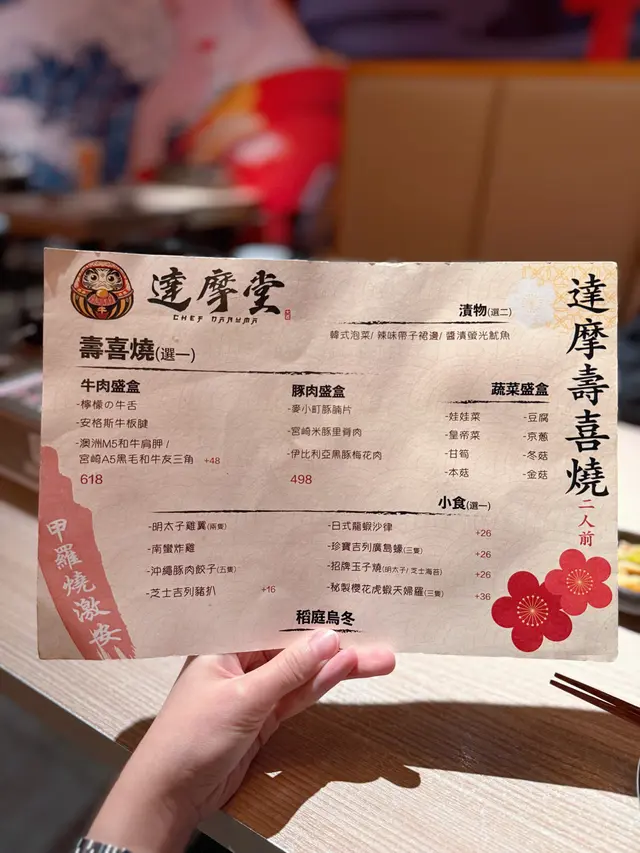 達摩堂
CHEF DARUMA
漬物(選二)
韓式泡菜/ 辣味帶子裙邊/ 醬漬螢光魷魚
壽喜燒(選一)
牛肉盛盒
-檸檬の牛舌
-安格斯牛板腱
-澳洲M5和牛肩胛 /
宮崎A5黑毛和牛友三角 +48
618
豚肉盛盒
-麥小町豚腩片
-宮崎米豚里脊肉
-伊比利亞黑豚梅花肉
498
蔬菜盛盒
-娃娃菜 -豆腐
-皇帝菜 -京蔥
-甘筍 -冬菇
-本菇 -金菇
小食(選一)
-明太子雞翼(兩隻)
-南蠻炸雞
-沖繩豚肉餃子(五隻)
-芝士吉列豬扒 +16
-日式龍蝦沙律 +26
-珍寶吉列廣島蠔(三隻) +26
-招牌玉子燒(明太子/ 芝士海苔) +26
-秘製櫻花虎蝦天婦羅(三隻) +36
稻庭烏冬
達摩壽喜燒
二人前
甲羅燒激安